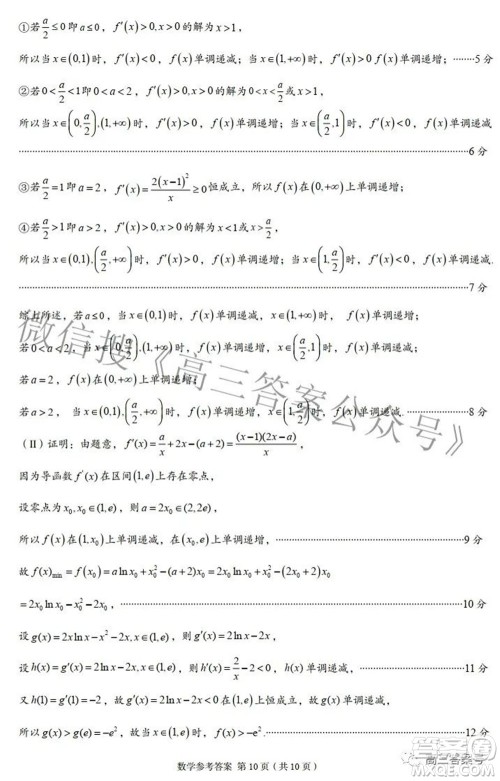 ①若a/2≤0即a≤0，f′(x)>0,x>0的解为x>1，
所以当x∈(0,1)时，f′(x)<0，f(x)单调递减；当x∈(1,+∞)时，f′(x)>0 f(x)单调递增；········5分
②若0<a/2<1即0<a<2，f′(x)>0,x>0的解为0<x<a/2或x>1，
所以当x∈(0,a/2),(1,+∞)时，f′(x)>0，f(x)单调递增；当x∈(a/2,1)时，f′(x)<0，f(x)单调递减
········6分
③若a/2=1即a=2，f′(x)=2(x-1)²/x≥0恒成立，所以f(x)在(0,+∞)上单调递增；
④若a/2>1即a>2，f′(x)>0,x>0的解为x<1或x>a/2，
所以当x∈(0,1),(a/2,+∞)时，f′(x)>0，f(x)单调递增；当x∈(1,a/2)时，f′(x)<0，f(x)单调递减
········7分
综上所述，若a≤0，当x∈(0,1)时，f(x)单调递减，当x∈(1,+∞)时，f(x)单调递增；
若0<a<2，当x∈(0,a/2),(1,+∞)时，f(x)单调递增，当x∈(a/2,1)时，f(x)单调递减；
若a=2，f(x)在(0,+∞)上单调递增；
若a>2，当x∈(0,1),(a/2,+∞)时，f(x)单调递增，x∈(1,a/2)时，f(x)单调递减. ········8分
(Ⅱ)证明：由题意，f′(x)=a/x+2x-(a+2)=(x-1)(2x-a)/x，
因为导函数f′(x)在区间(1,e)上存在零点，
设零点为x₀,x₀∈(1,e)，则a=2x₀∈(2,2e)，
所以f(x)在(1,x₀)上单调递减，在(x₀,e)上单调递增，········9分
故f(x)min=f(x₀)=alnx₀+x₀²-(a+2)x₀=2x₀lnx₀+x₀²-(2x₀+2)x₀
=2x₀lnx₀-x₀²-2x₀，········10分
设g(x)=2xlnx-x²-2x,x∈(1,e)，则g′(x)=2lnx-2x，
设h(x)=g′(x)=2lnx-2x,x∈(1,e)，则h′(x)=2/x-2<0，h(x)单调递减，········11分
又h(1)=g′(1)=-2，故g′(x)=2lnx-2x<0在(1,e)上恒成立，故g(x)单调递减，
所以g(x)>g(e)=-e²，故f(x)>-e².········12分
数学参考答案 第10页（共10页）
微信搜《高三答案公众号》
答案圈
高三答案号